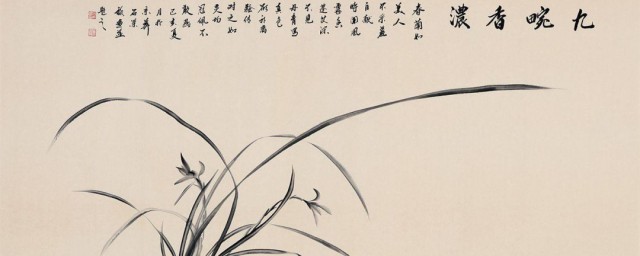 九畹香濃
春蘭如
美人
不采羞
自獻
時聞風
露香
蓬艾深
不見
丹青寫
真色
欲補離
騷傳
對之如
靈均
冠佩不
敢燕
夏
月於
石渠
題之